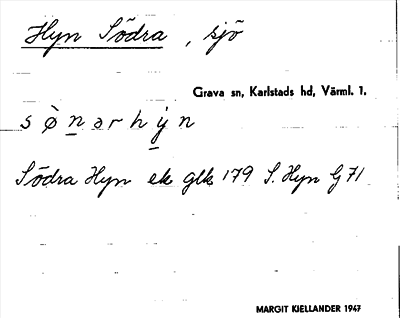 Hyn Södra, sjö
Grava sn, Karlstads hd, Värml. 1.
s ø̀ n̲ ə r h y̲̍ n
Södra Hyn ek glk 179 S. Hyn G 71
MARGIT KJELLANDER 1947